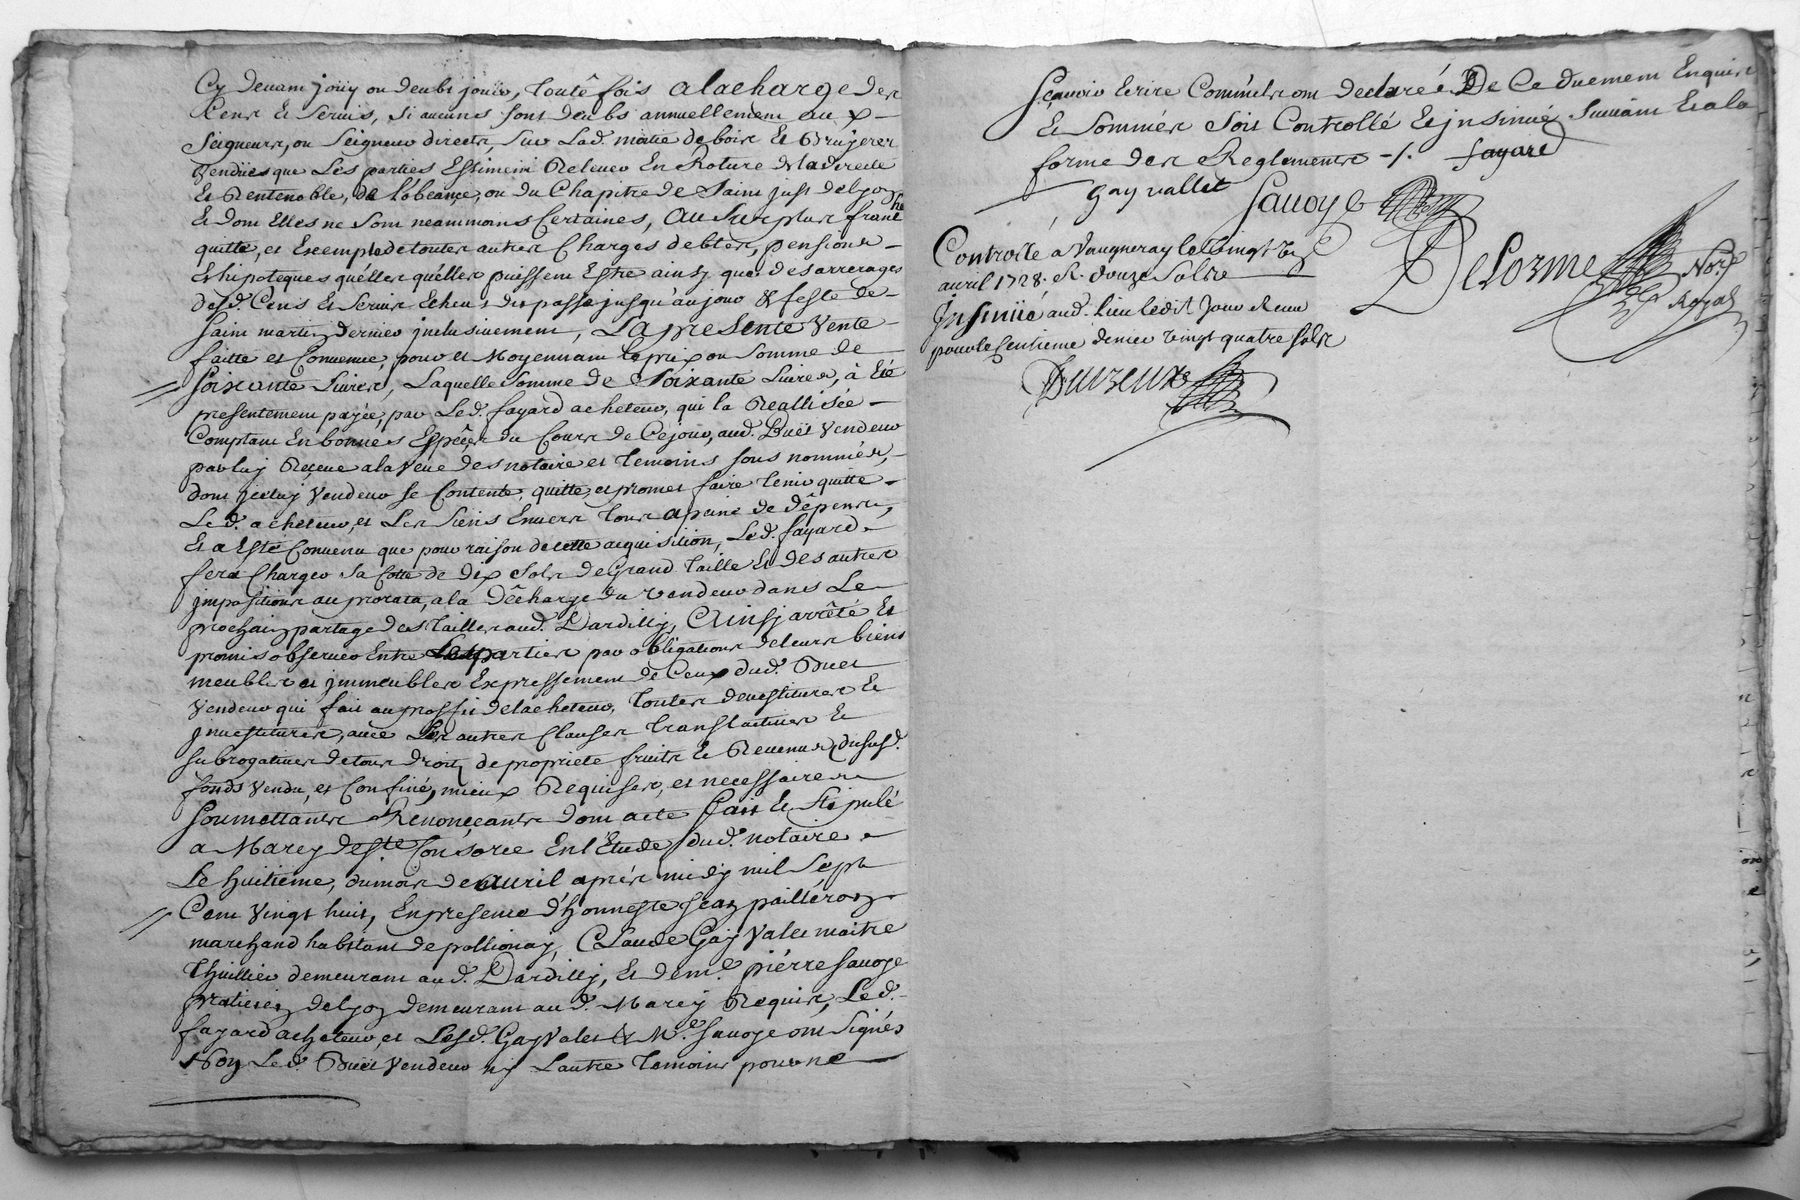 Cy devant jouy ou deubt jouir, toute fois a la charge des
Cens et servis, si aucuns sont deubs annuellement au x
Seigneurs, ou Seigneur directe, sur Lad. moitié de bois et Bruyeres
vendües que Les parties Estiment Relever En Roture de la directe
Et Rente noble, de l'obeance, ou du Chapitre de Saint just de Lyon
Et dont Elles ne sont neammoins Certaines, Au Surplus franche
quitte, et Exempte de toutes autres Charges debtes, pensions
Et hipoteques quelles qu'elles puissent Estre ainsy que des arrerages
desd. Cens et servis Echeus du passé jusqu'au jour & feste de
Saint martin dernier inclusivement, La presente Vente
faitte et Convenue, pour et Moyennant le prix ou somme de
soixante Livres, Laquelle somme de soixante Livres, à Eté
presentement payée, par Led. fayard acheteur, qui la Reallisée
Comptant En bonnes Espèces du Cours de Cejour, aud. Buët Vendeur
par luy Receue a la veue des notaire et temoins sous nommés,
dont iceluy vendeur se Contente, quitte, et promet faire tenir quitte
Led. acheteur, et Les siens Envers tous a peine de dépens,
Et a Esté Convenu que pour raison de cette acquisition, Led. fayard
fera Charger sa Cotte de dix sols de Grand taille Et des autres
jmpositions au prorata, a la décharge du vendeur dans Le
prochain partage des tailles aud. Dardilly, Ainsy arrêté Et
promis observer Entre Les parties par obligations de leurs biens
meubles et jmmeubles Expressement de Ceux dud. Buet
Vendeur qui fait au proffit de lacheteur, toutes devestitures Et
jnvestitures, avec Les autres Clauses translatives Et
subrogatives de tous droits de propriete fruits Et Revenus dususd.
fonds vendu, et Confiné, mieux Requises, et necessaires
soumettants Renonceants dont acte Fait Et Stipulé
a Marcy de Ste Consorce En l'Etude dud. notaire
Le huitieme, du mois de avril après midy mil Sept
Cent Vingt huit, En presence d'honneste jean pailleron
marchand habitant de pollionay, Claude Gay Valet maitre
thuillier demeurant aud. Dardilly, Et de me. piérre savoye
praticien de Lyon demeurant aud. Marcy Requis, Led.
fayard acheteur, et Lesd. Gay Valet & Me. savoye ont signés
Non Led. Buët Vendeur ny Lautre temoins pour ne
sçavoir Ecrire Comm'ils ont declaré De Ce duement Enquis
Et sommés Soit Controllé Et jnsinué suivant Et a la
forme des Reglements -/. fayard
gay vallet Savoye
Controllé a Vaugneray le Vingt
avril 1728. R. douze sols
Delorme Nore
Royal
Jnsinüé aud. Lieu ledit Jour Receu
pour le Centieme denier vingt quatre sols